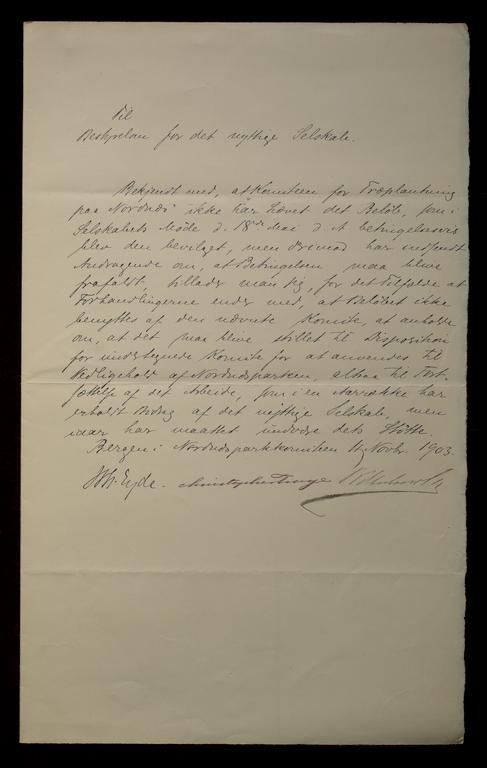 Til
Bestyrelsen for det nyttige Selskab.
Bekjendt med, at Komiteen for Træplantning
paa Nordnæs ikke har hævet det Beløb, som i
Selskabets Møde d. 18de Mai d. A. betingelsesvis
blev den bevilget, men derimod har indsendt
Andragende om, at Betingelsen maa blive
frafaldt, tillader man sig, for det Tilfælde at
Forhandlingerne ender med, at Beløbet ikke
benyttes af den nævnte Komite, at anholde
om, at det maa blive stillet til Disposition
for undertegnede Komite for at anvendes til
Vedligehold af Nordnæsparken, altsaa til Fort-
sættelse af det Arbeide, som i en Aarrække har
erholdt Bidrag af det nyttige Selskab, men
iaar har maattet undvære dets Støtte.
Bergen i Nordnæsparkkomiteen 11 Novbr. 1903.
Eyde.